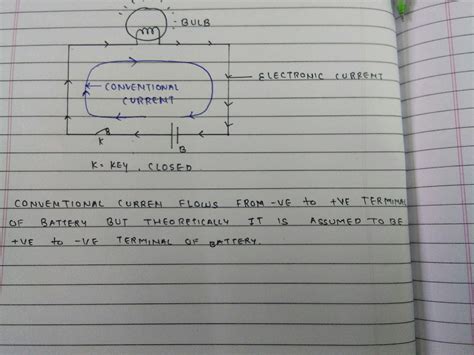 - BULB
ELECTRONIC CURRENT
CONVENTIONAL
CURRENT
K
B
K = KEY, CLOSED
CONVENTIONAL CURREN FLOWS FROM -VE to +VE TERMINAL
OF BATTERY BUT THEORETICALLY IT IS ASSUMED TO BE
+VE to -VE TERMINAL OF BATTERY.